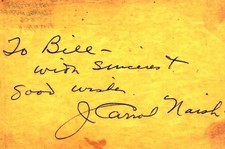 To Bill -
with sincerest
good wishes
J. Carrol Naish